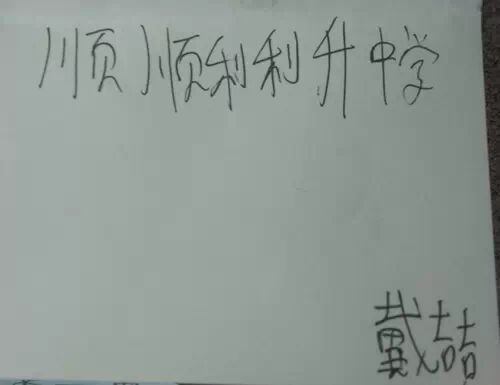 顺顺利利升中学
戴喆